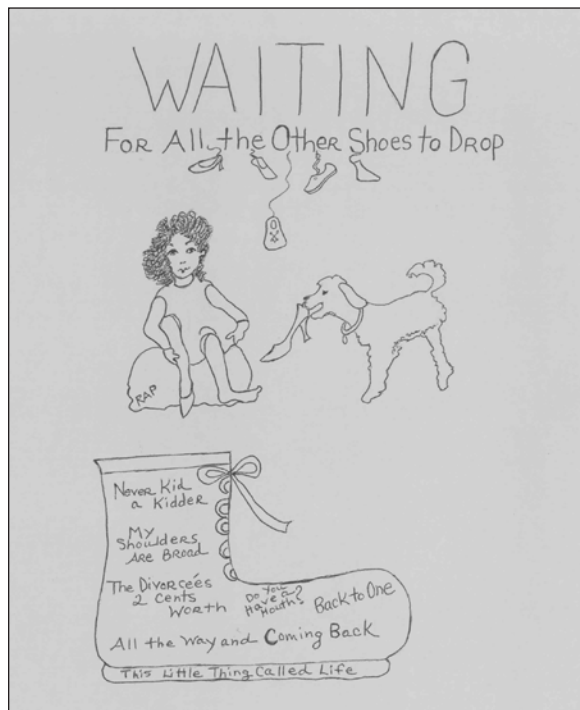 WAITING
FOR All the Other SHOES to DROP
RAP
Never Kid
a Kidder
My
Shoulders
Are Broad
The Divorceés
2 Cents
Worth
Do You
Have a
Mouth?
Back to One
All the Way and Coming Back
This Little Thing Called Life